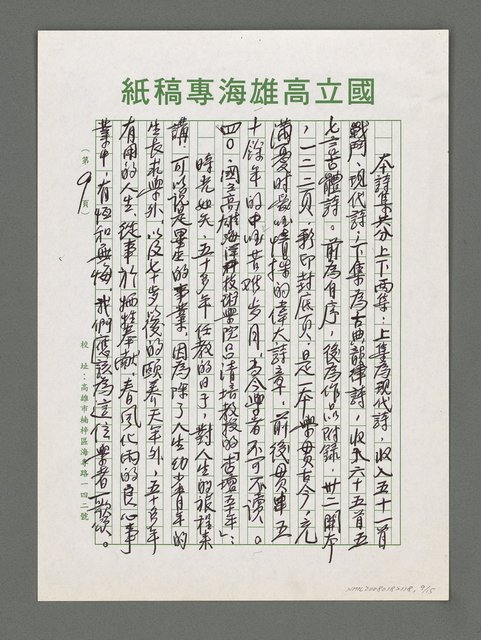 國立高雄海專稿紙
本詩集共分上下兩集：上集為現代詩，收入五十一首
戰鬥、現代詩；下集為古典韻律詩，收入六十五首五
七言古體詩。前為自序，後為作品附錄，卅二開本
，一二二頁，彩印封底頁，是一本學貫古今，充
滿憂時
的偉人詩章，前後貫串五
十餘年的中
苦難歲月，當今學者不可不讀。
四〇、國立高雄海洋科技術學院呂清培教授的「杏壇五十年」：
時光如矢，五十多年任教的日子，對人生的旅程來
講，可以說是畢生的事業，因為除了人生幼少青年的
生長求學外，以及七十歲以後的頤養天年外，五十多年
有用的人生，從事於犧牲奉獻，春風化雨的良心事
業中，有恆和無悔，我們應該為這位學者一歌頌。
（第9頁）
校址：高雄市楠梓區海專路一四二號
NMTL20080182118, 9/15